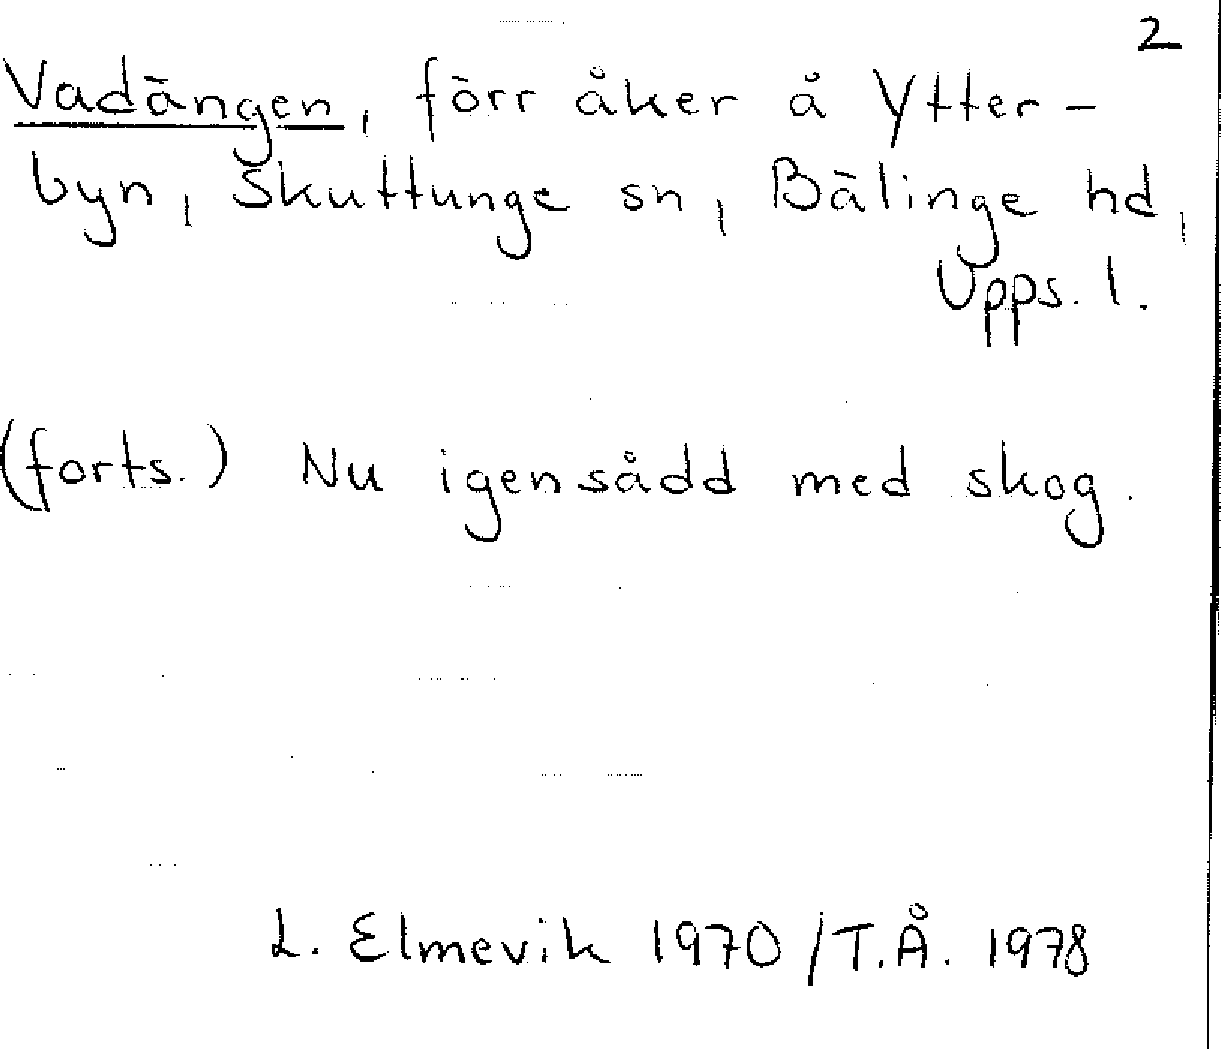 2
Vadängen, förr åker å Ytter-
byn, Skuttunge sn, Bälinge hd,
Upps. l.
(forts.) Nu igensådd med skog.
L. Elmevik 1970/T.Å. 1978